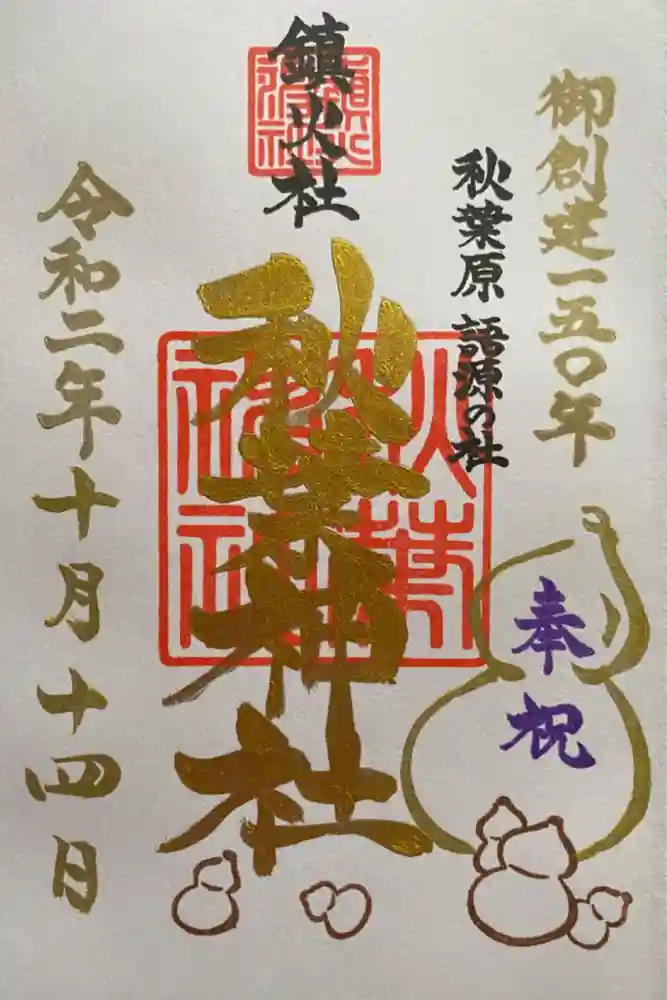 御創建一五〇年
秋葉原 語源の社
鎮火社
秋葉神社
奉祝
令和二年十月十四日